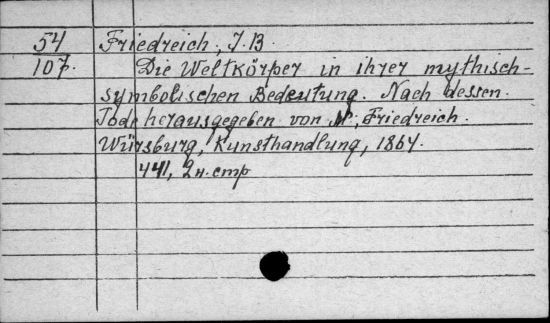 54 Friedreich, J. B.
107. Die Weltkörper in ihrer mythisch-
symbolischen Bedeutung. Nach dessen.
Tode herausgegeben von M. Friedreich.
Würsburg, Kunsthandlung, 1864.
441, 2 н. стр